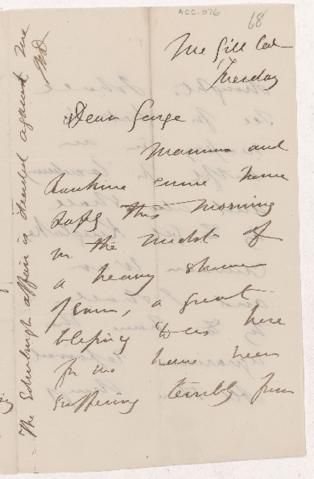 ACC-076
68
Mc Gill Col
Tuesday
Dear George
Mamma and
Rankine came home
safely this morning
in the midst of
a heavy shower
of rain, a great
blessing to us here
for we have been
suffering terribly from
The Edinburgh affair is decided against me